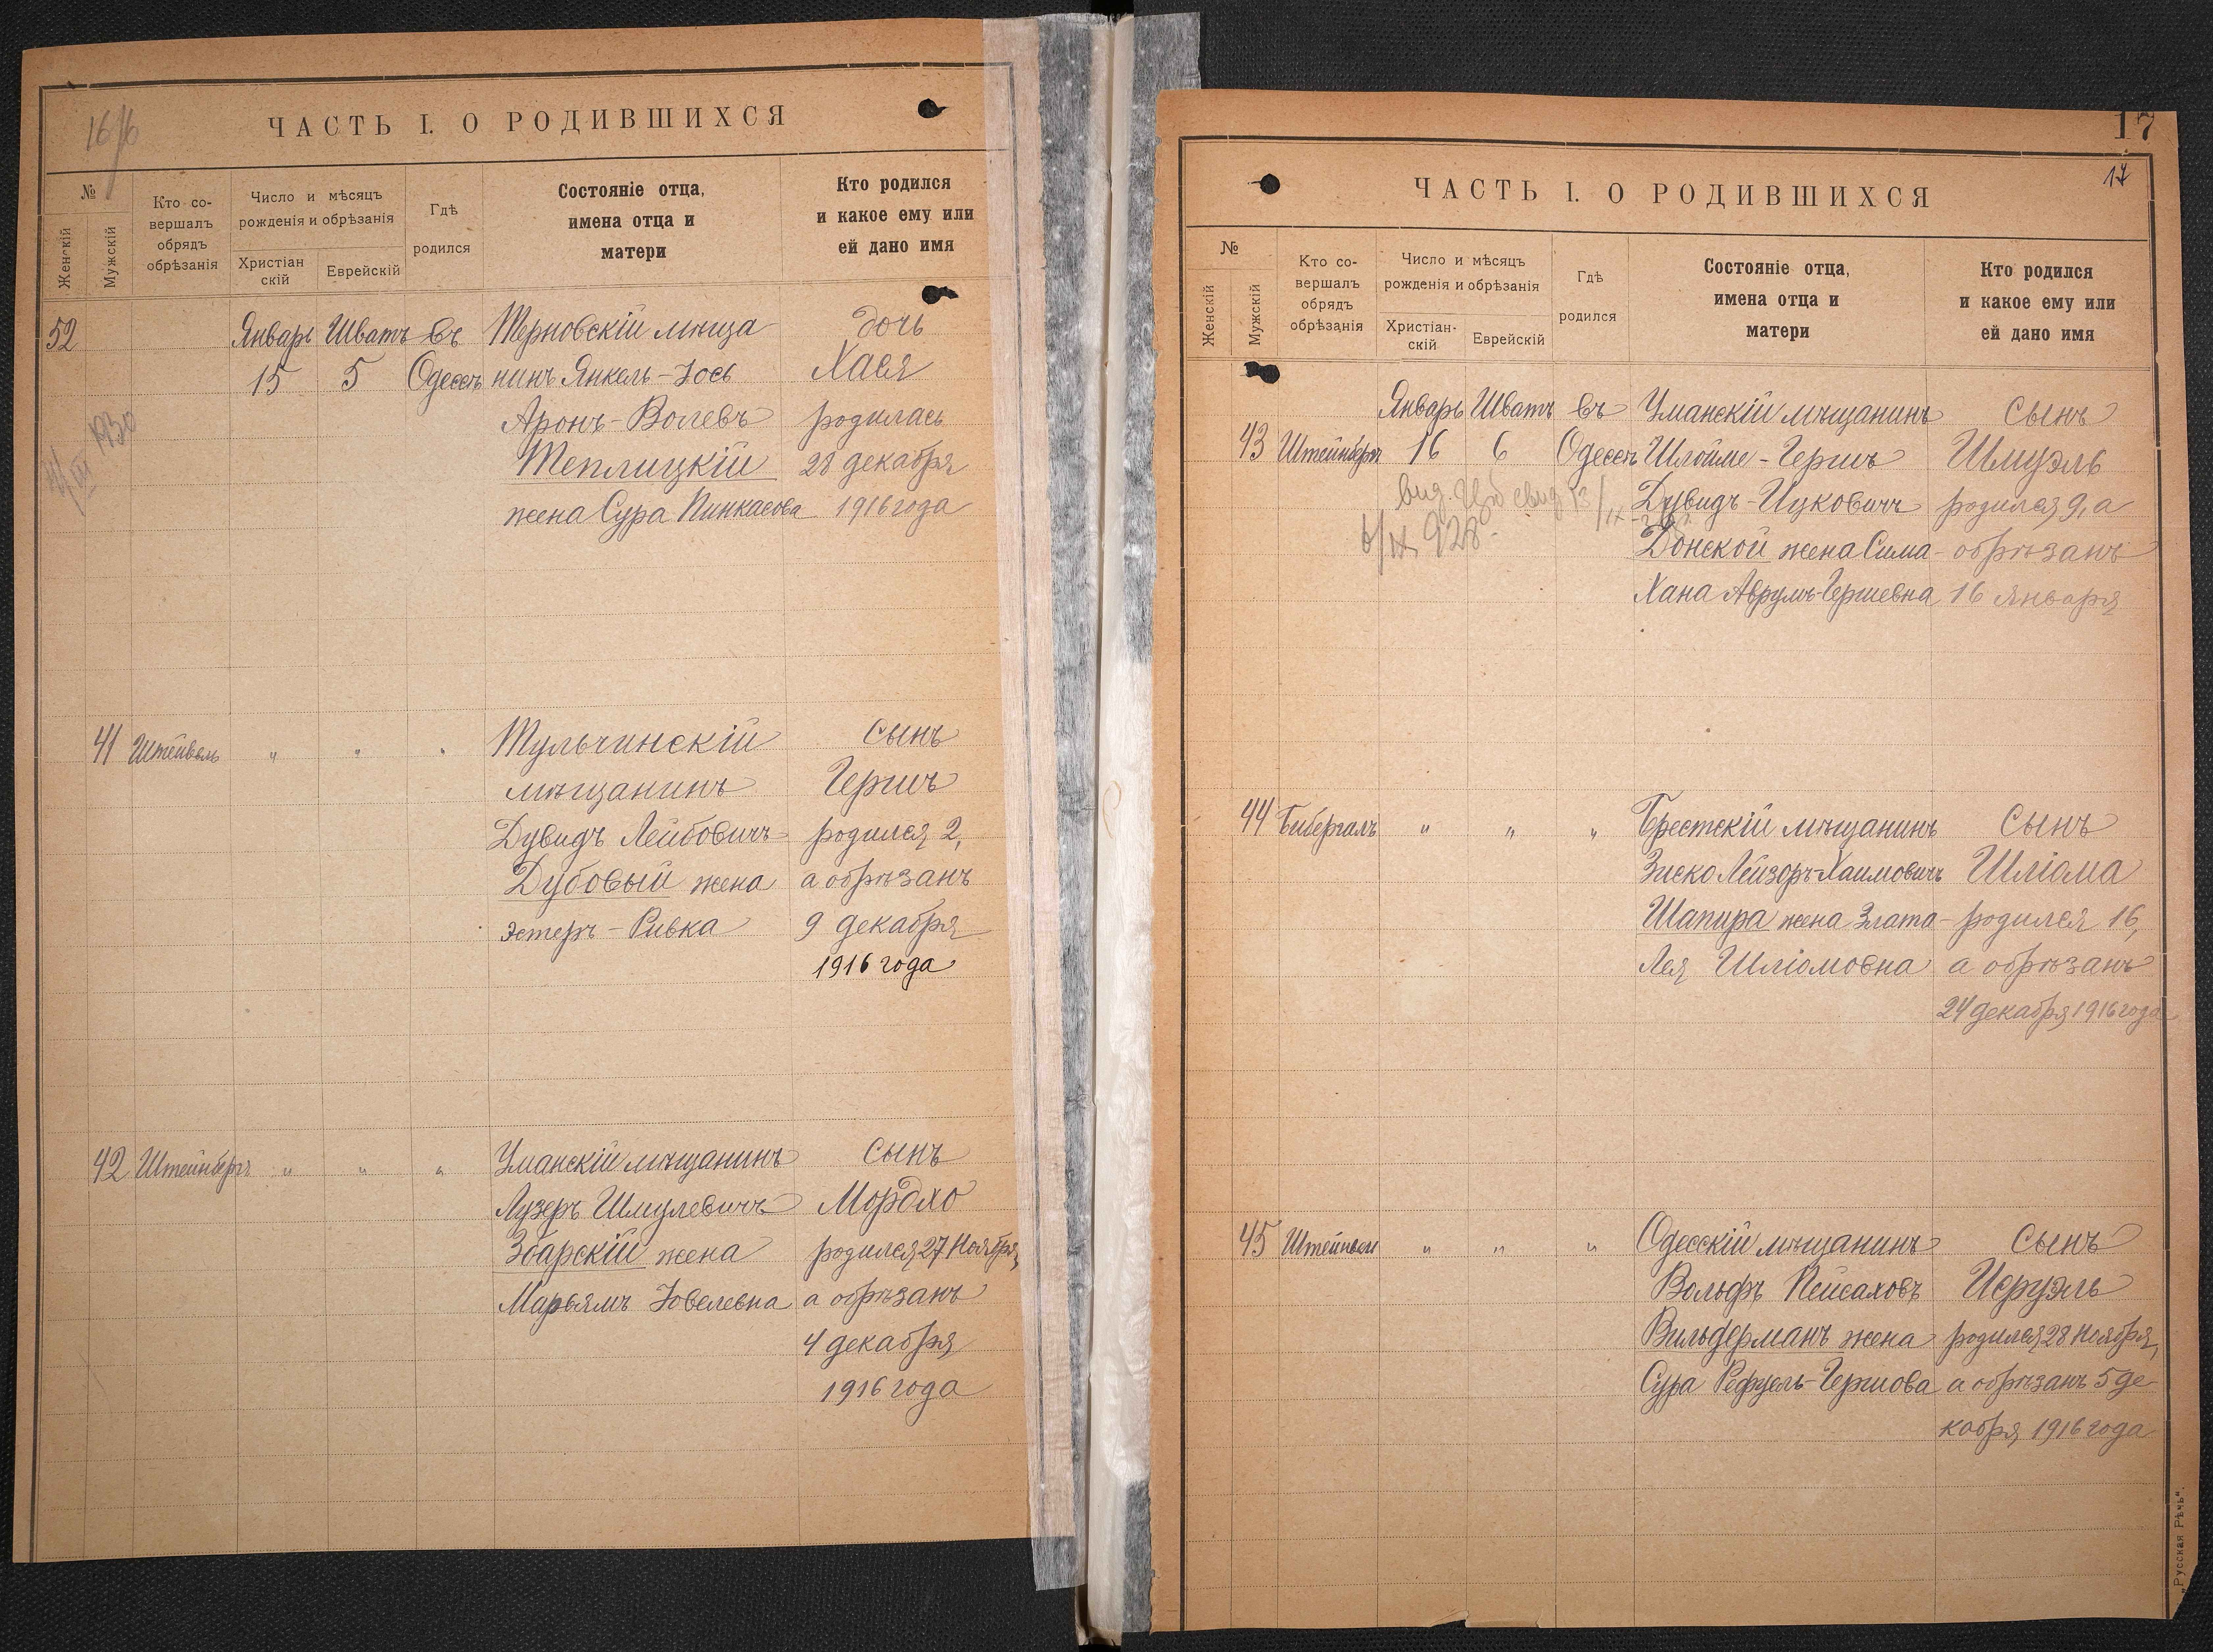 ЧАСТЬ I. О РОДИВШИХСЯ
№
Женскій
Мужскій
Кто со-
вершалъ
обрядъ
обрѣзанія
Число и мѣсяцъ
рожденія и обрѣзанія
Христіан
скій
Еврейскій
Гдѣ
родился
Состояніе отца,
имена отца и
матери
Кто родился
и какое ему или
ей дано имя
52 Январь Шватъ въ Терновскій мѣща дочь
15 5 Одессѣ нинъ Янкель-Іось Хася
Аронъ-Волевъ родилась
Теплицкій 28 декабря
жена Сура Пинкасова 1916 года
1930
41 Штейвель " " " Тульчинскій сынъ
мѣщанинъ Гершъ
Дувидъ Лейбовичъ родился 2,
Дубовый жена а обрѣзанъ
Эстеръ-Ривка 9 декабря
1916 года
42 Штейнбергъ " " " Уманскій мѣщанинъ сынъ
Лузеръ Шмулевичъ Мордхо
Збарскій жена родился 27 Ноября,
Марьямъ Іовелевна а обрѣзанъ
4 декабря
1916 года
17
17
ЧАСТЬ I. О РОДИВШИХСЯ
№
Женскій
Мужскій
Кто со-
вершалъ
обрядъ
обрѣзанія
Число и мѣсяцъ
рожденія и обрѣзанія
Христіан-
скій
Еврейскій
Гдѣ
родился
Состояніе отца,
имена отца и
матери
Кто родился
и какое ему или
ей дано имя
Январь Шватъ въ Уманскій мѣщанинъ сынъ
43 Штейнбергъ 16 6 Одессѣ Шлойме-Гершъ Шмуэль
Дувидъ-Ицковичъ родился 9, а
Донской жена Сима- обрѣзанъ
Хана Аврумъ-Гершевна 16 января
6/IX 928.
44 Бибергалъ " " " Брестскій мѣщанинъ сынъ
Зиско Лейзоръ-Хаимовичъ Шліома
Шапира жена Злата- родился 16,
Лея Шліомовна а обрѣзанъ
24 декабря 1916 года
45 Штейвель " " " Одесскій мѣщанинъ сынъ
Вольфъ Пейсаховъ Исруэль
Вильдерманъ жена родился 28 Ноября,
Сура Рефуель-Гершова а обрѣзанъ 5 де
кабря 1916 года
„Русская Рѣчь“.